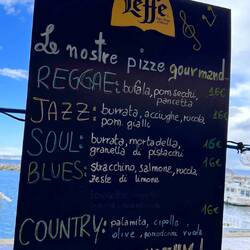 Leffe
Le nostre pizze gourmand
REGGAE: bufala, pom secchi,
pancetta 16€
JAZZ: burrata, acciughe, rucola,
pom. gialli 16€
SOUL: burrata, mortadella,
granella di pistacchi 16€
BLUES: stracchino, salmone, rucola,
zeste di limone 16€
COUNTRY: palamita, cipolla,
olive, pomodorini, rucola